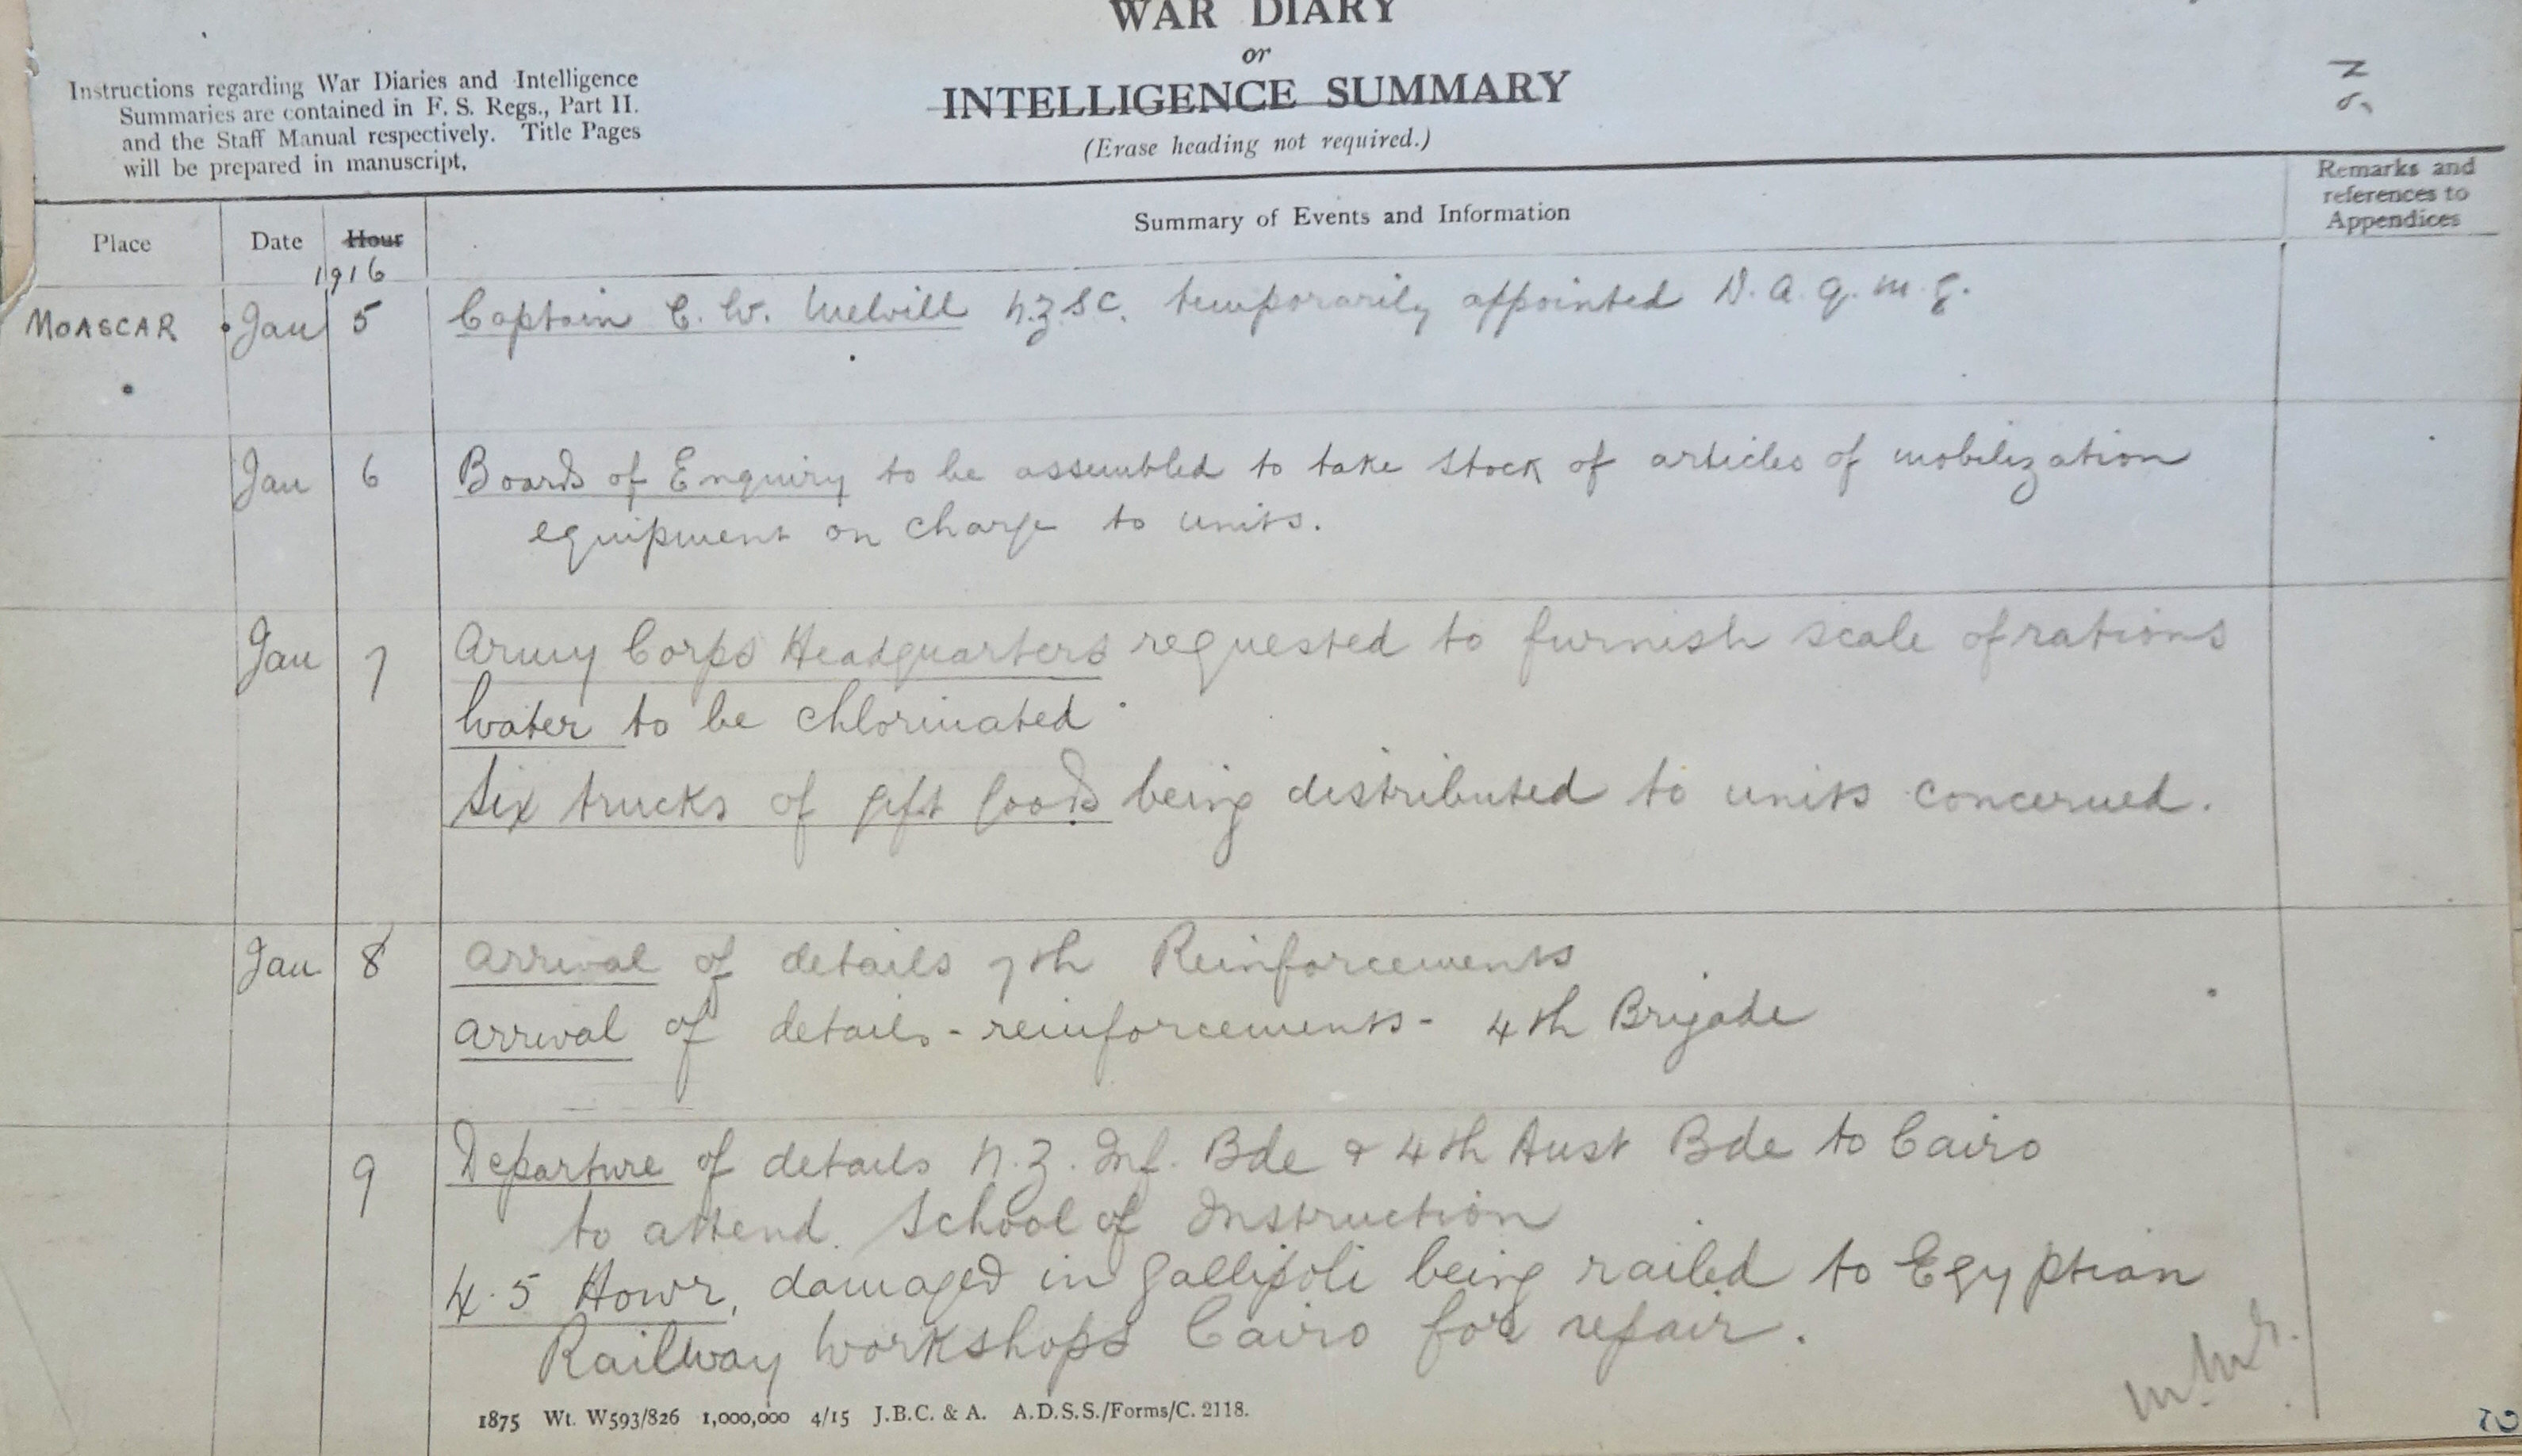 WAR DIARY
or
INTELLIGENCE SUMMARY
(Erase heading not required.)
Instructions regarding War Diaries and Intelligence
Summaries are contained in F. S. Regs., Part II.
and the Staff Manual respectively. Title Pages
will be prepared in manuscript.
Place
Date
Hour
Summary of Events and Information
Remarks and
references to
Appendices
1916
MOASCAR Jan 5 Captain C. W. Melvill N.Z.S.C. temporarily appointed D.A.Q.M.G.
Jan 6 Boards of Enquiry to be assembled to take stock of articles of mobilization
equipment on charge to units.
Jan 7 Army Corps Headquarters requested to furnish scale of rations
Water to be chlorinated
Six trucks of gift goods being distributed to units concerned.
Jan 8 Arrival of details 7th Reinforcements
Arrival of details - reinforcements - 4th Brigade
9 Departure of details N.Z. Inf. Bde & 4th Aust Bde to Cairo
to attend School of Instruction
4.5 Howr, damaged in Gallipoli being railed to Egyptian
Railway Workshops Cairo for repair.
1875 Wt. W593/826 1,000,000 4/15 J.B.C. & A. A.D.S.S./Forms/C. 2118.